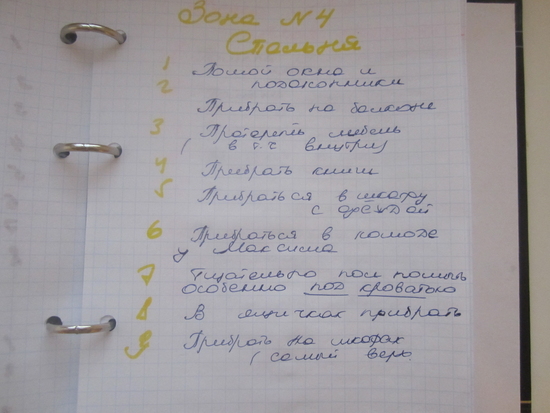 Зона №4
Спальня
1 Помой окна и
2 подоконники
Прибрать на балконе
3 Протереть мебель
( в т.ч внутри)
4 Прибрать книги
5 Прибраться в шкафу
с одеждой
6 Прибраться в комоде
у Максима
7 Тщательно пол помыть
особенно под кроватью
8 В ящичках прибрать
9 Прибрать на шкафах
( самый верх